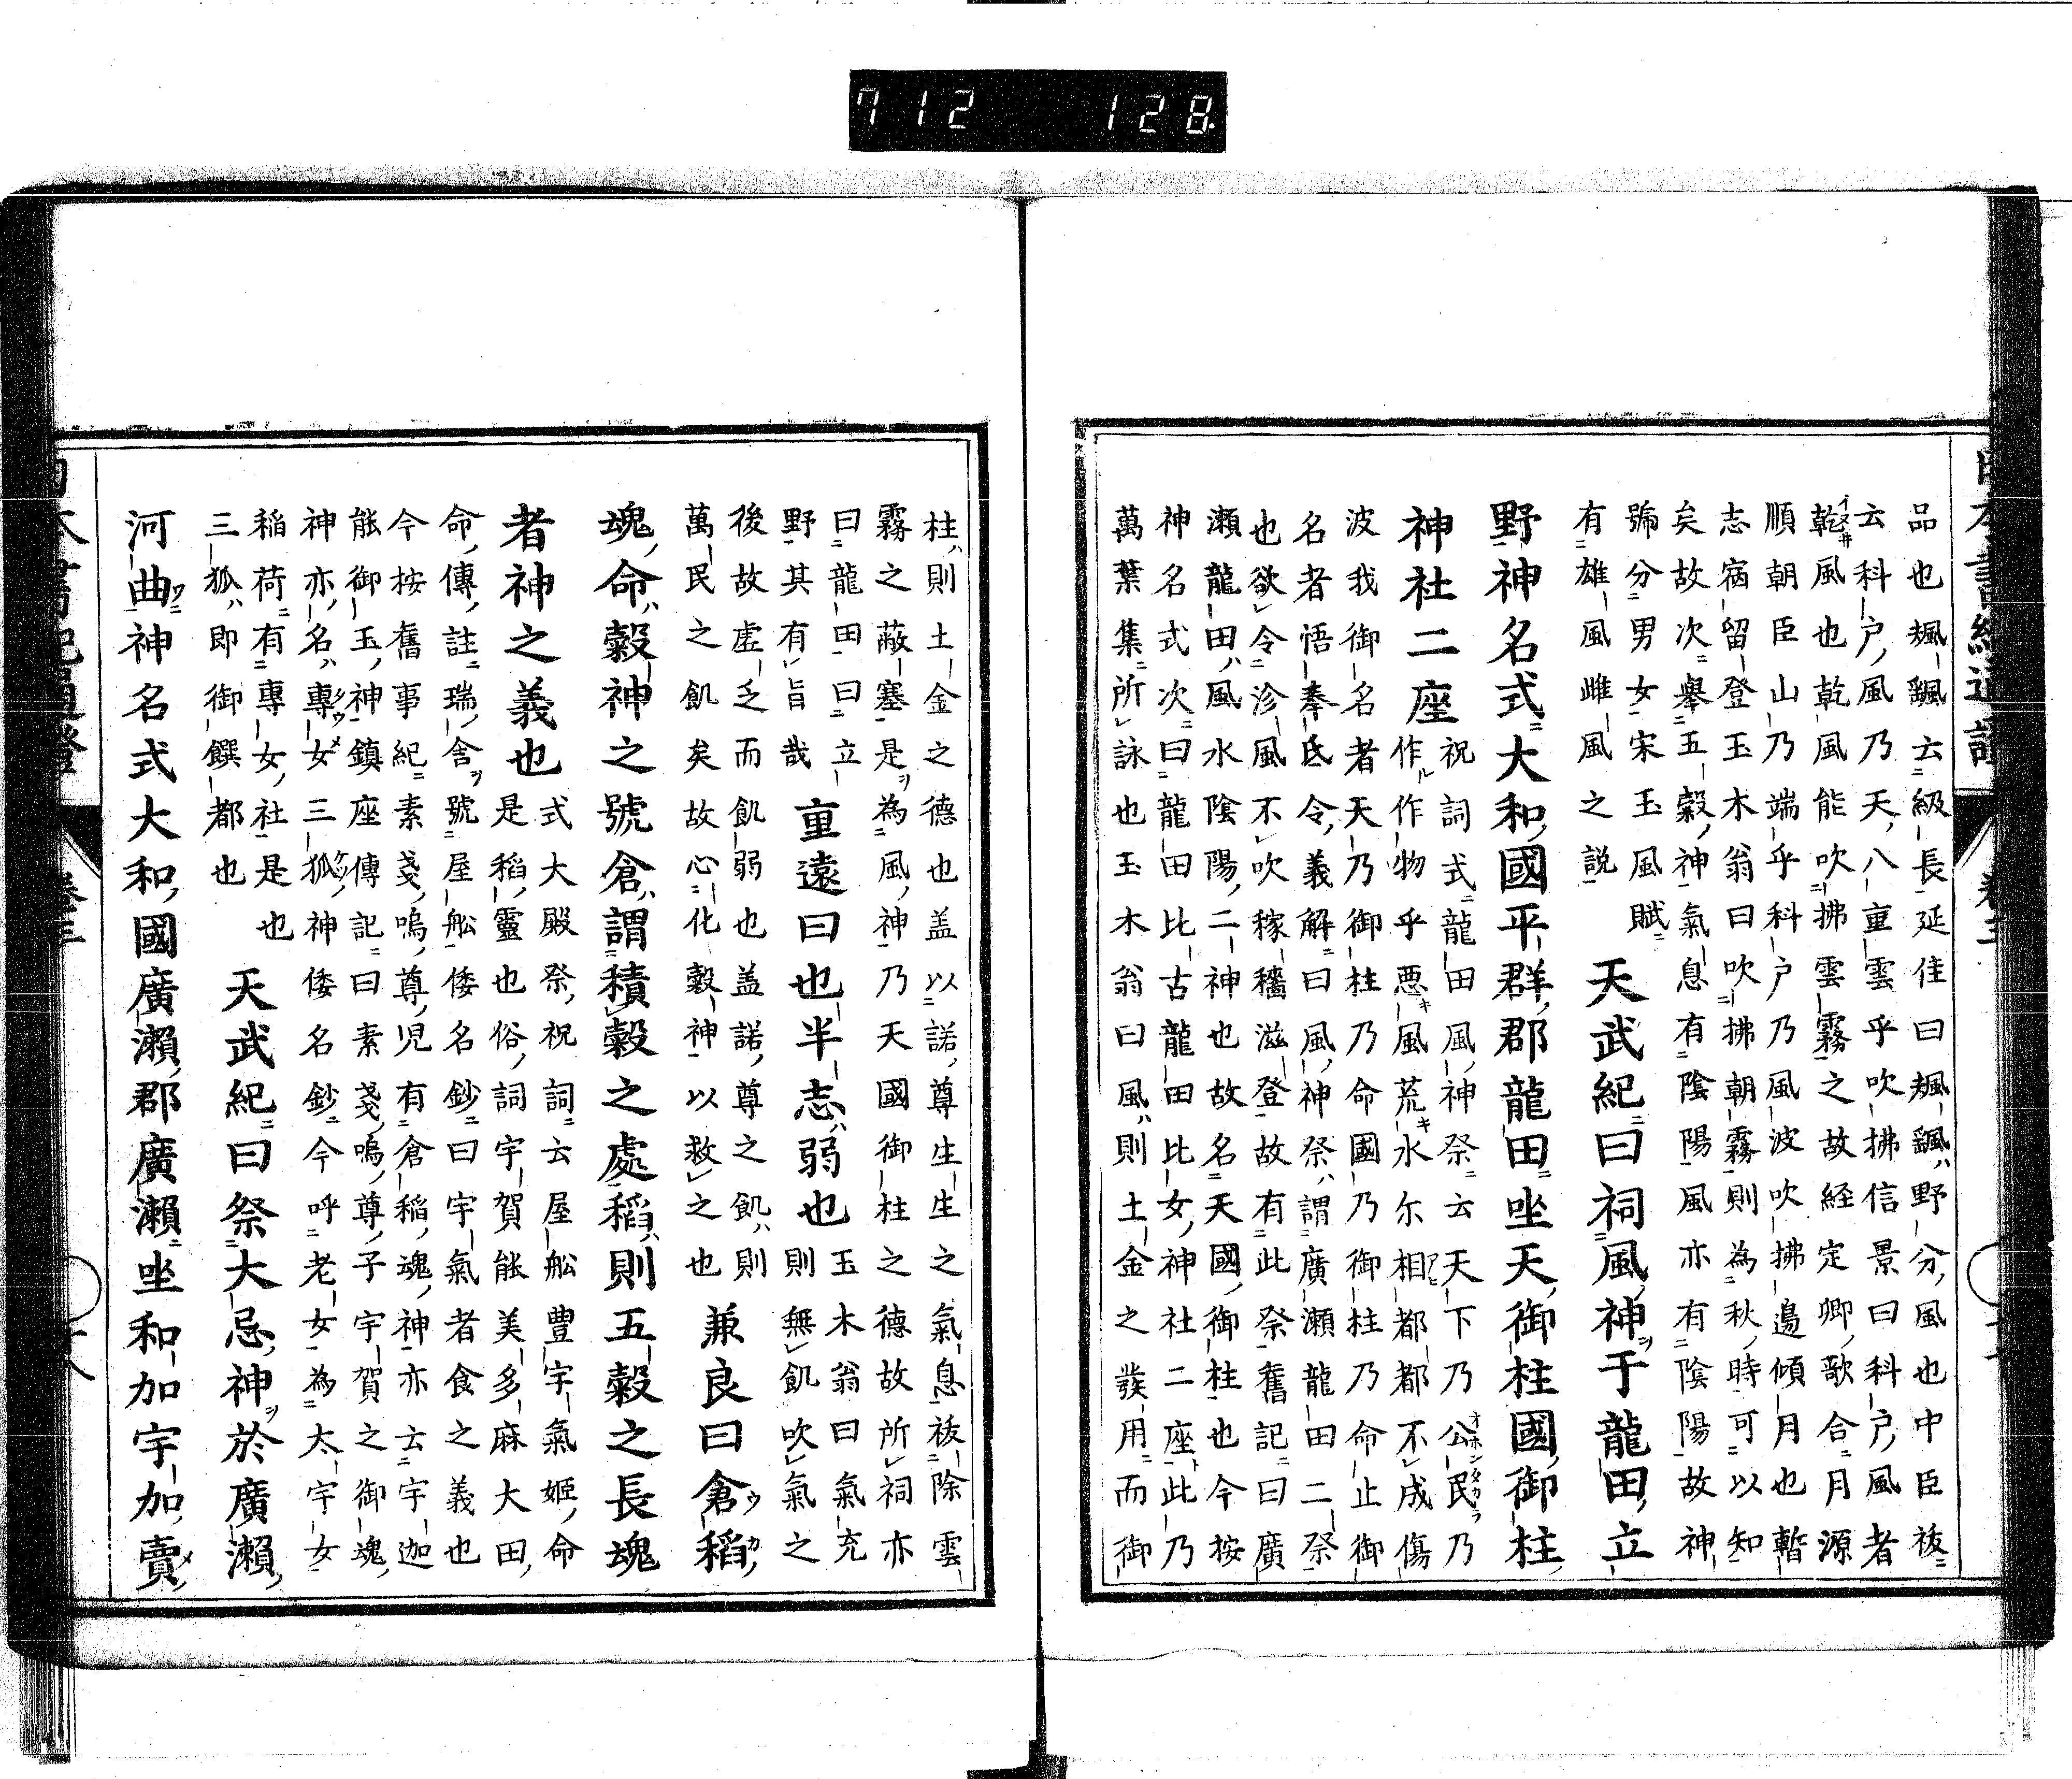 712 128
品也颯飄云級長延佳曰颯飄野分風也中臣祓
云科戸風乃天八重雲乎吹拂信景曰科戸風者
乾風也乾風能吹拂雲霧之故経定卿歌合月源
順朝臣山乃端乎科戸乃風波吹拂邉傾月也暫
志宿留登玉木翁曰吹拂朝霧則為秋時可以知
矣故次舉五穀神氣息有陰陽風亦有陰陽故神
號分男女宋玉風賦
有雄風雌風之説
天武紀曰祠風神于龍田立
野神名式大和國平群郡龍田坐天御柱國御柱
神社二座
祝詞式龍田風神祭云天下乃公民乃
作作物乎悪風荒水尓相都都不成傷
波我御名者天乃御柱乃命國乃御柱乃命止御
名者悟奉氐令義解曰風神祭謂廣瀬龍田二祭
也欲令沴風不吹稼穡滋登故有此祭舊記曰廣
瀬龍田風水陰陽二神也故名天國御柱也今按
神名式次曰龍田比古龍田比女神社二座此乃
萬葉集所詠也玉木翁曰風則土金之發用而御
柱則土金之德也盖以諾尊生生之氣息祓除雲
霧之蔽塞是為風神乃天國御柱之德故所祠亦
曰龍田曰立
野其有旨哉
重遠曰也半志弱也
玉木翁曰氣充
則無飢吹氣之
後故虚乏而飢弱也盖諾尊之飢則
萬民之飢矣故心化穀神以救之也
兼良曰倉稻
魂命穀神之號倉謂積穀之處稻則五穀之長魂
者神之義也
式大殿祭祝詞云屋舩豊宇氣姬命
是稻靈也俗詞宇賀能美多麻大田
命傳註瑞舎號屋舩倭名鈔曰宇氣者食之義也
今按舊事紀素戔嗚尊児有倉稻魂神亦云宇迦
能御玉神鎮座傳記曰素戔嗚尊子宇賀之御魂
神亦名專女三狐神倭名鈔今呼老女為太宇女
稲荷有專女社是也
三狐即御饌都也
天武紀曰祭大忌神於廣瀬
河曲神名式大和國廣瀬郡廣瀬坐和加宇加賣